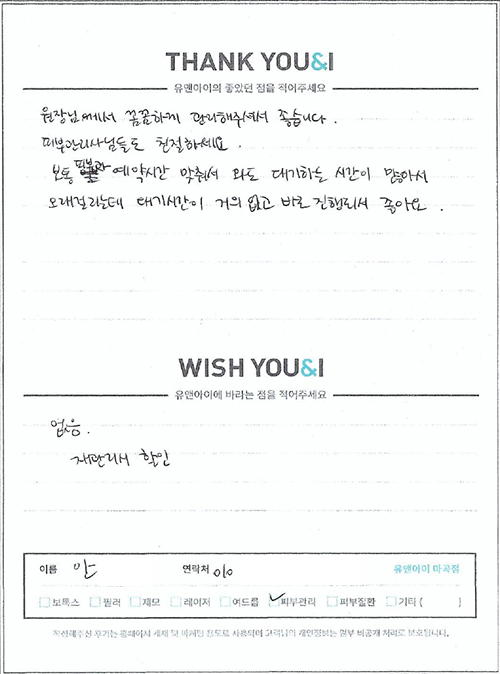 THANK YOU&I
유앤아이의 좋았던 점을 적어주세요
원장님께서 꼼꼼하게 관리해주셔서 좋습니다.
피부관리사님들도 친절하세요.
보통 피부과 예약시간 맞춰서 와도 대기하는 시간이 많아서
오래걸리는데 대기시간이 거의 없고 바로 진행되서 좋아요.
WISH YOU&I
유앤아이에 바라는 점을 적어주세요
없음.
재관리시 할인
이름 안 연락처 010 유앤아이 마곡점
보톡스 필러 제모 레이저 여드름 피부관리 피부질환 기타 ( )
작성해주신 후기는 홈페이지 게재 및 마케팅 용도로 사용되며 고객님의 개인정보는 일부 비공개 처리로 보호됩니다.